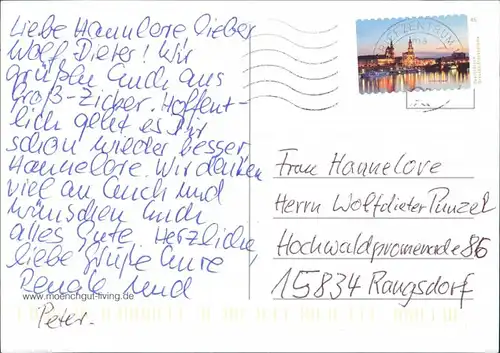 Liebe Hannelore, lieber
Wolf Dieter! Wir
grüßen Euch aus
Groß-Zicker. Hoffent-
lich geht es Dir
schon wieder besser
Hannelore. Wir denken
viel an Euch und
wünschen Euch
alles Gute. Herzliche,
liebe Grüße Eure
Renate und
www.moenchgut-living.de
Peter.
ZENTRUM
45
Frau Hannelore
Herrn Wolfdieter Punzel
Hochwaldpromenade 86
15834 Rangsdorf